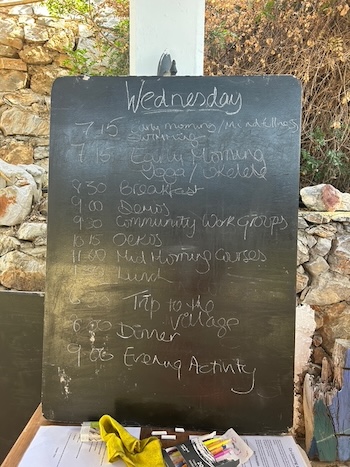 Wednesday
7.15 Early morning / Mindfulness
Swimming
7.15 Early Morning
Yoga /
8.30 Breakfast
9.00 Demos
9.30 Community Work Groups
10.15 Oekos
11.00 Mid Morning Courses
Lunch
Trip to the
Village
Dinner
9.00 Evening Activity